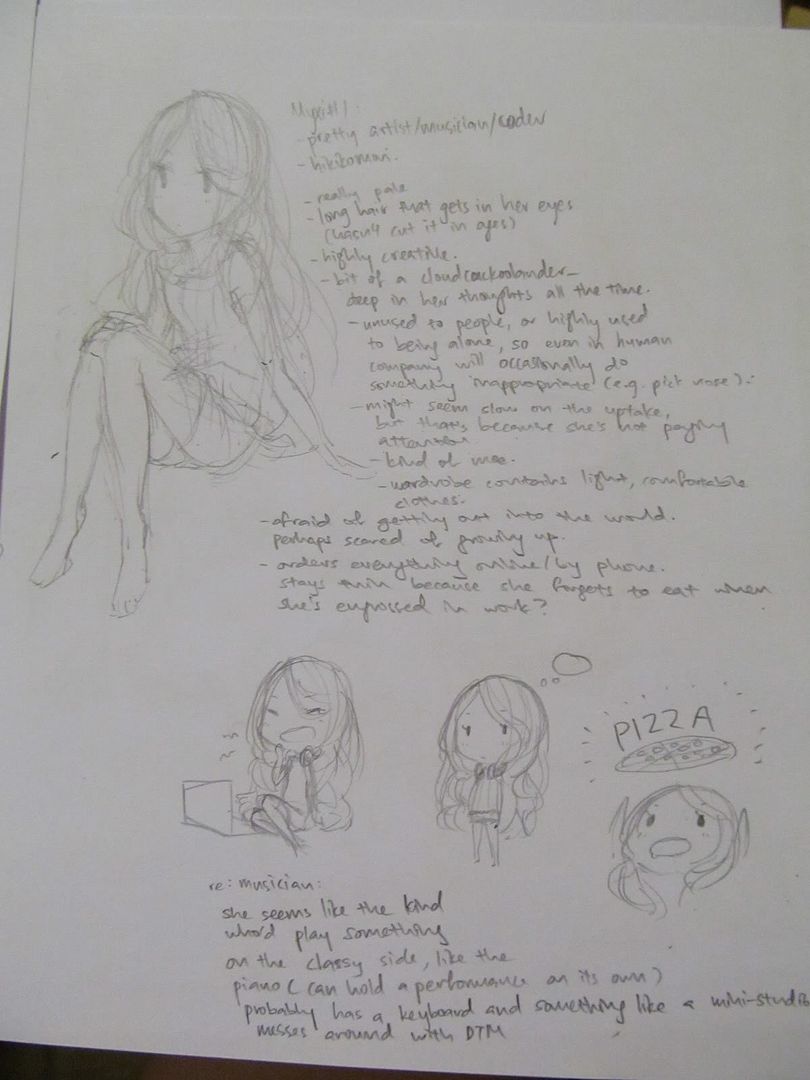 - pretty artist/musician/coder
- hikikomori.
- really pale
- long hair that gets in her eyes
(hasn't cut it in ages)
- highly creative.
- bit of a cloudcuckoolander -
deep in her thoughts all the time.
- unused to people, or highly used
to being alone, so even in human
company will occasionally do
something inappropriate (e.g. pick nose).
- might seem slow on the uptake,
but that's because she's not paying
attention.
- kind of
- wardrobe contains light, comfortable
clothes.
- afraid of getting out into the world.
perhaps scared of growing up.
- orders everything online/by phone.
stays thin because she forgets to eat when
she's engrossed in work?
PIZZA
re: musician:
she seems like the kind
who'd play something
on the classy side, like the
piano (can hold a performance on its own)
probably has a keyboard and something like a mini-studio
messes around with DTM